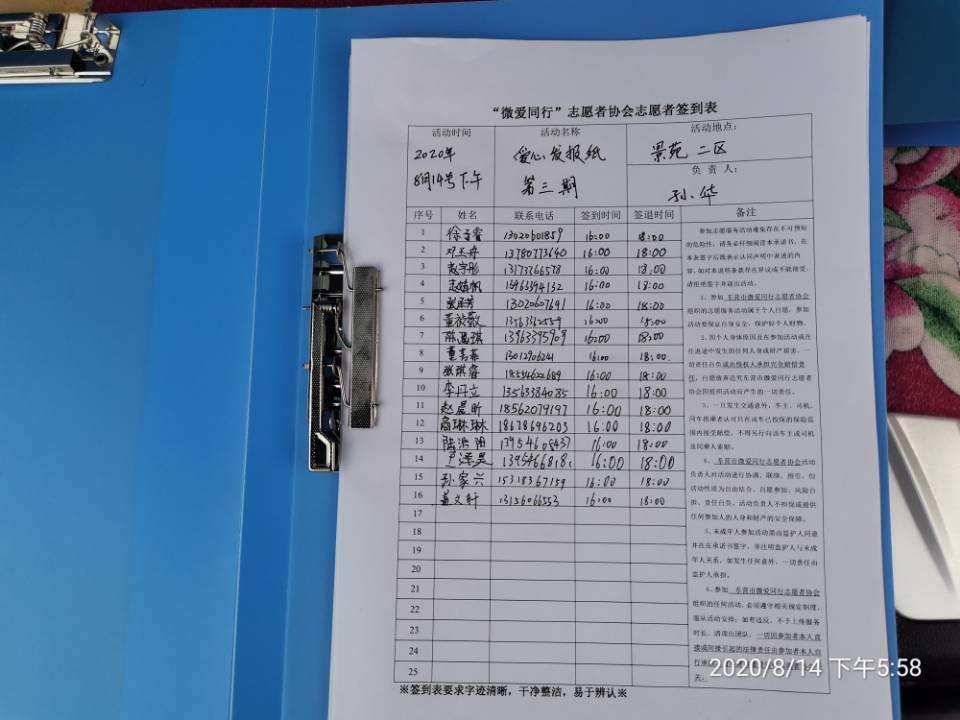 “微爱同行”志愿者协会志愿者签到表
活动时间 活动名称 活动地点：
2020年 爱心发报纸 景苑 二区
8月14号下午 第三期 负 责 人：
孙华
序号 姓名 联系电话 签到时间 签退时间 备注
1 13020601859 16:00 18:00
2 13780773640 16:00 18:00
3 13173766578 16:00 18:00
4 15963394132 16:00 18:00
5 13020607691 16:00 18:00
6 16:00 18:00
7 13963395909 16:00 18:00
8 13012906241 16:00 18:00
9 18554622689 16:00 18:00
10 李丹立 13563384085 16:00 18:00
11 赵晨昕 18562079197 16:00 18:00
12 高琳琳 18678696203 16:00 18:00
13 13954608437 16:00 18:00
14 尹泽昊 16:00 18:00
15 孙家兴 15318367159 16:00 18:00
16 董文轩 13156066553 16:00 18:00
17
18
19
20
21
22
23
24
25
参加志愿服务活动难免存在不可预知
的危险性，请务必仔细阅读本承诺书，在
本表签字后既表示认同声明中表述的内
容，如对本说明条款存在异议或不能接受，
请拒绝签字并退出活动。
1、参加 东营市微爱同行志愿者协会
组织的志愿服务活动属于个人自愿，参加
活动要保证自身安全，保护好个人财物。
2、因个人身体原因及在参加活动或在
往返途中发生的任何人身或财产损害，一
切责任自负或由侵权人承担完全赔偿责
任；自愿放弃追究东营市微爱同行志愿者
协会因组织活动而产生的一切责任。
3、一旦发生交通意外，车主、司机、
同车搭乘者认可只在该车已投保的保险范
围内接受赔偿，不得另行向该车主或司机
及同乘人索赔。
4、东营市微爱同行志愿者协会活动
负责人对活动进行协调、联络、指引，但
活动性质为自由结合、自愿参加、风险自
担、责任自负。活动负责人不担保或提供
任何参加人的人身和财产的安全保障。
5、未成年人参加活动需由监护人同意
并在在承诺书签字，并注明监护人与未成
年人关系，如发生任何意外，一切责任由
监护人承担。
6、参加 东营市微爱同行志愿者协会
组织的任何活动，必须遵守相关规定制度，
服从活动安排；如有违反，不予上传服务
时长，清理出团队，一切因参加者本人直
接或间接引起的法律责任由参加者本人自
※签到表要求字迹清晰，干净整洁，易于辨认※
2020/8/14 下午5:58